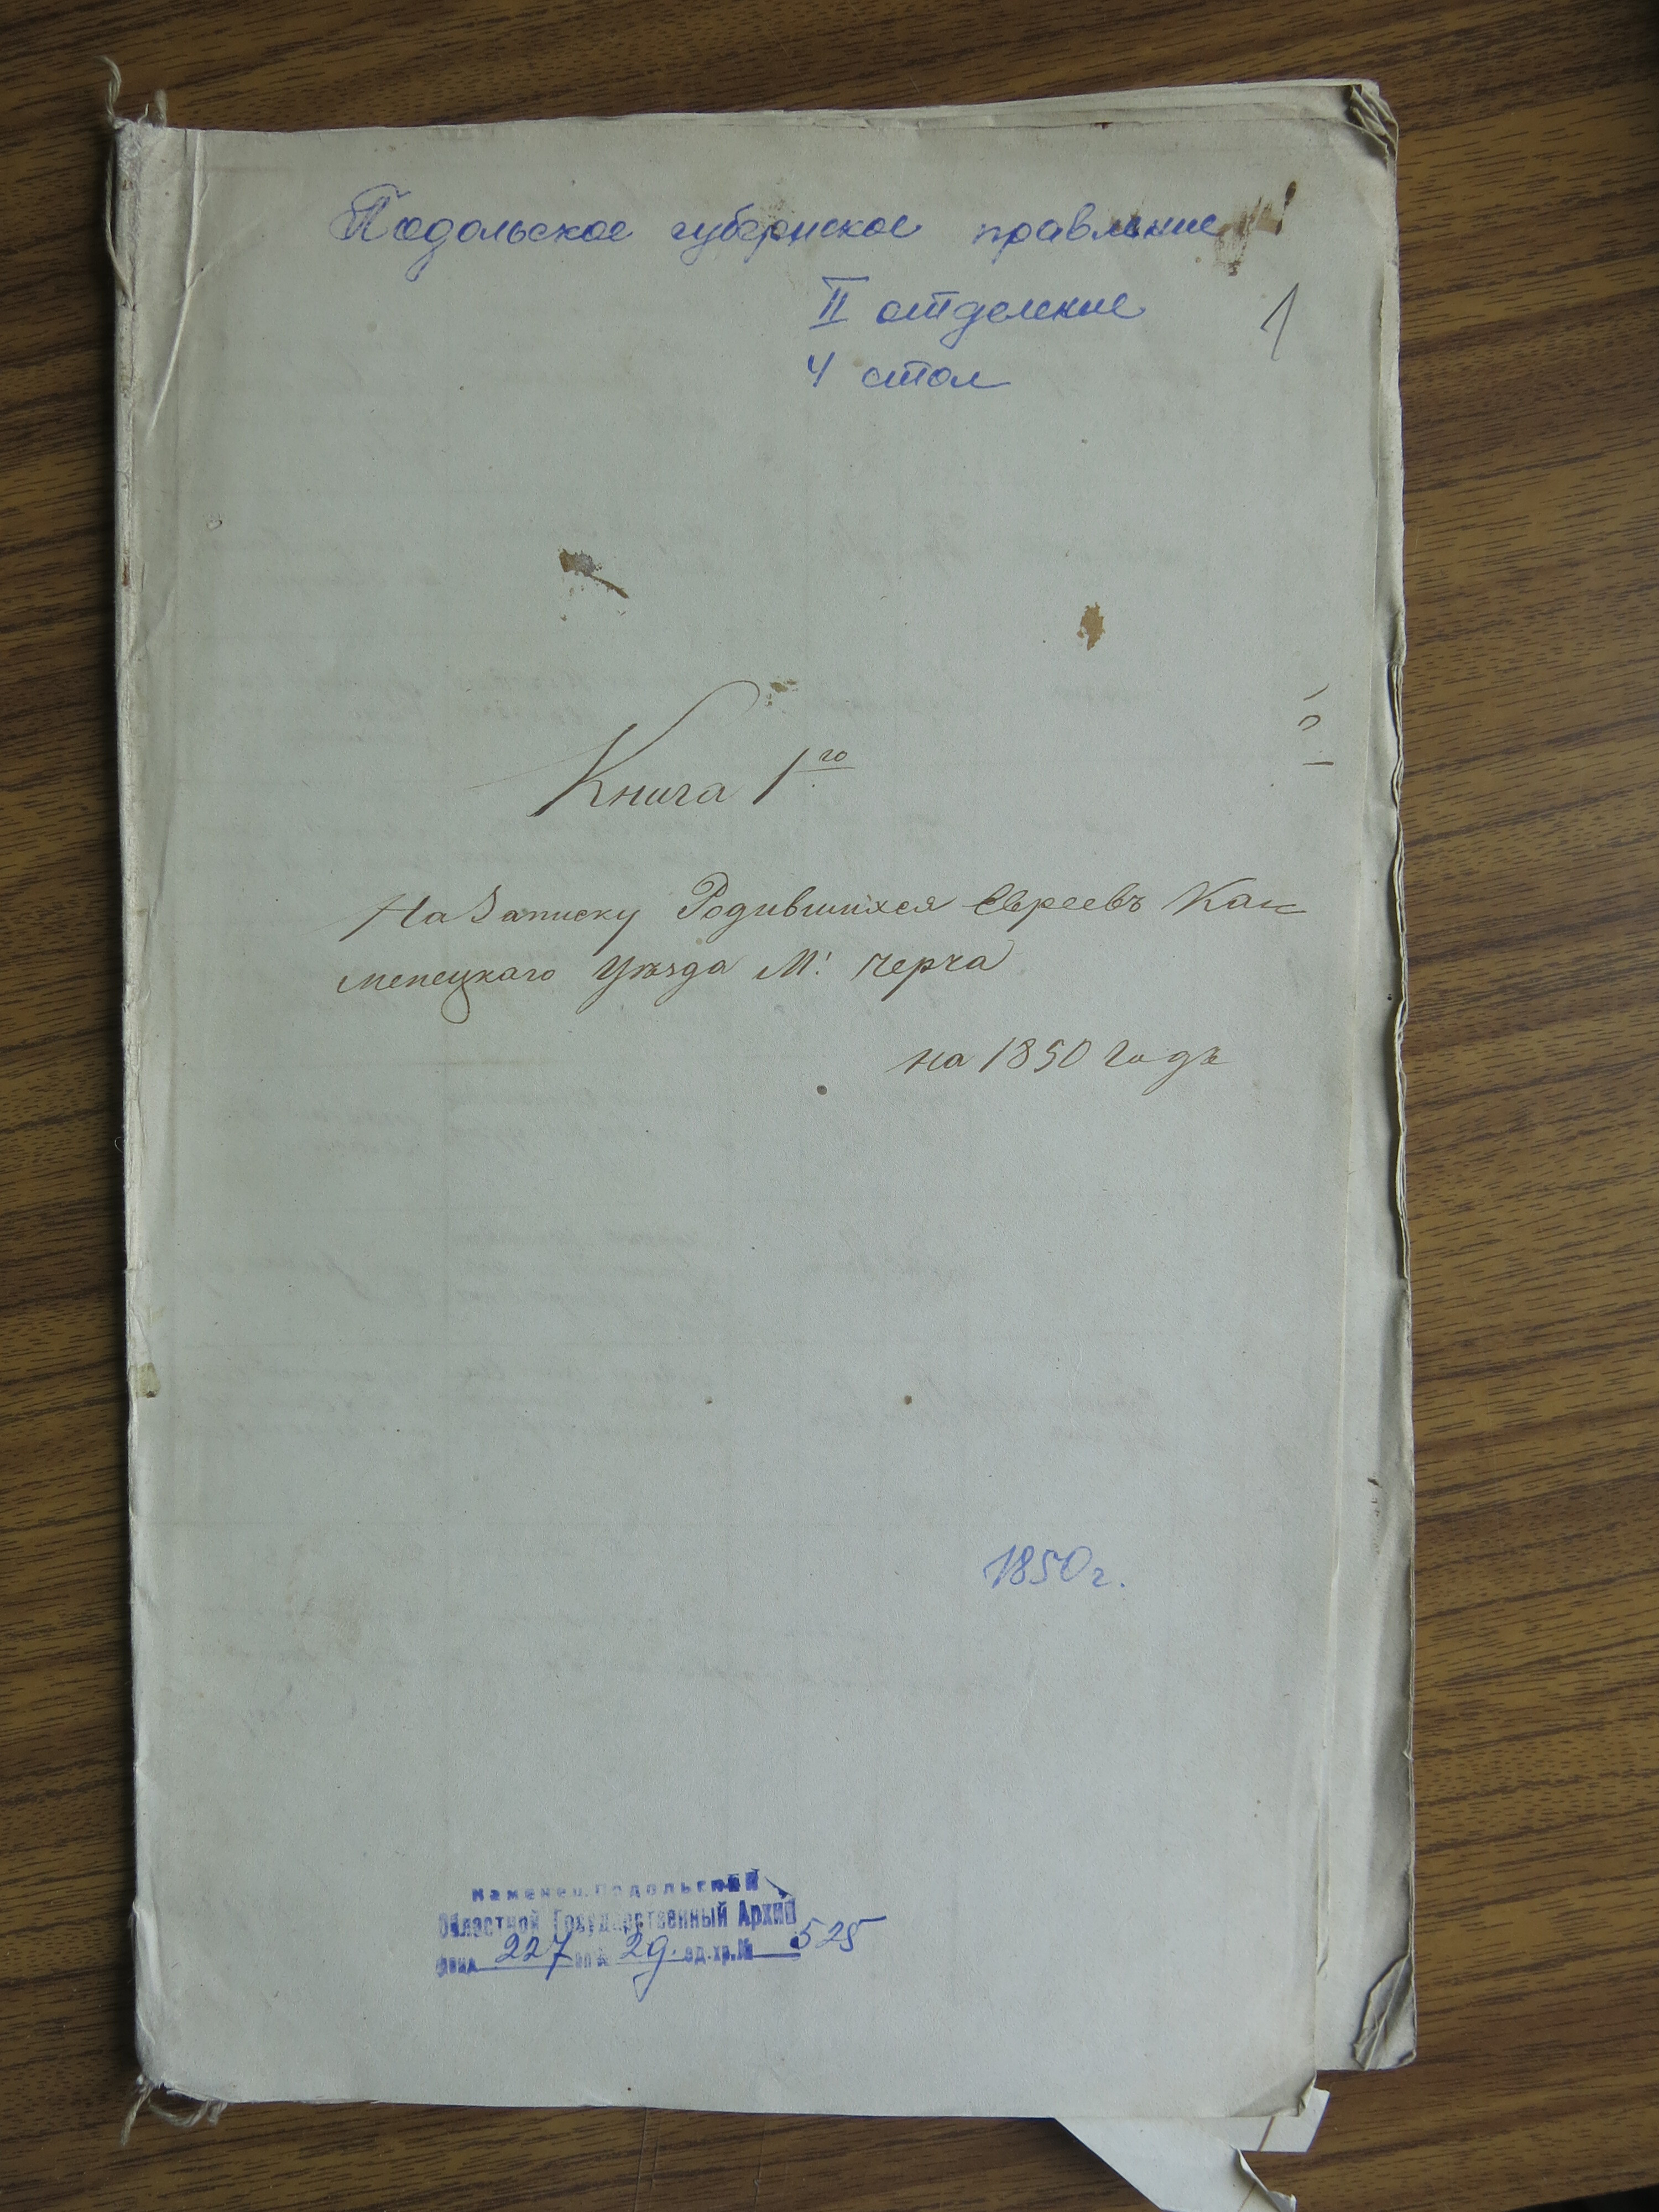 Подольское губернское правление
II отделение
1
4 стол
Книга 1го
На Записку Родившихся Евреевъ Кам
менецкаго Уѣзда М: Черча
на 1850 Годъ
1850 г.
Каменец-Подольский
Областной Государственный Архив
Фонд 227 оп № 29 ед.хр.№ 525